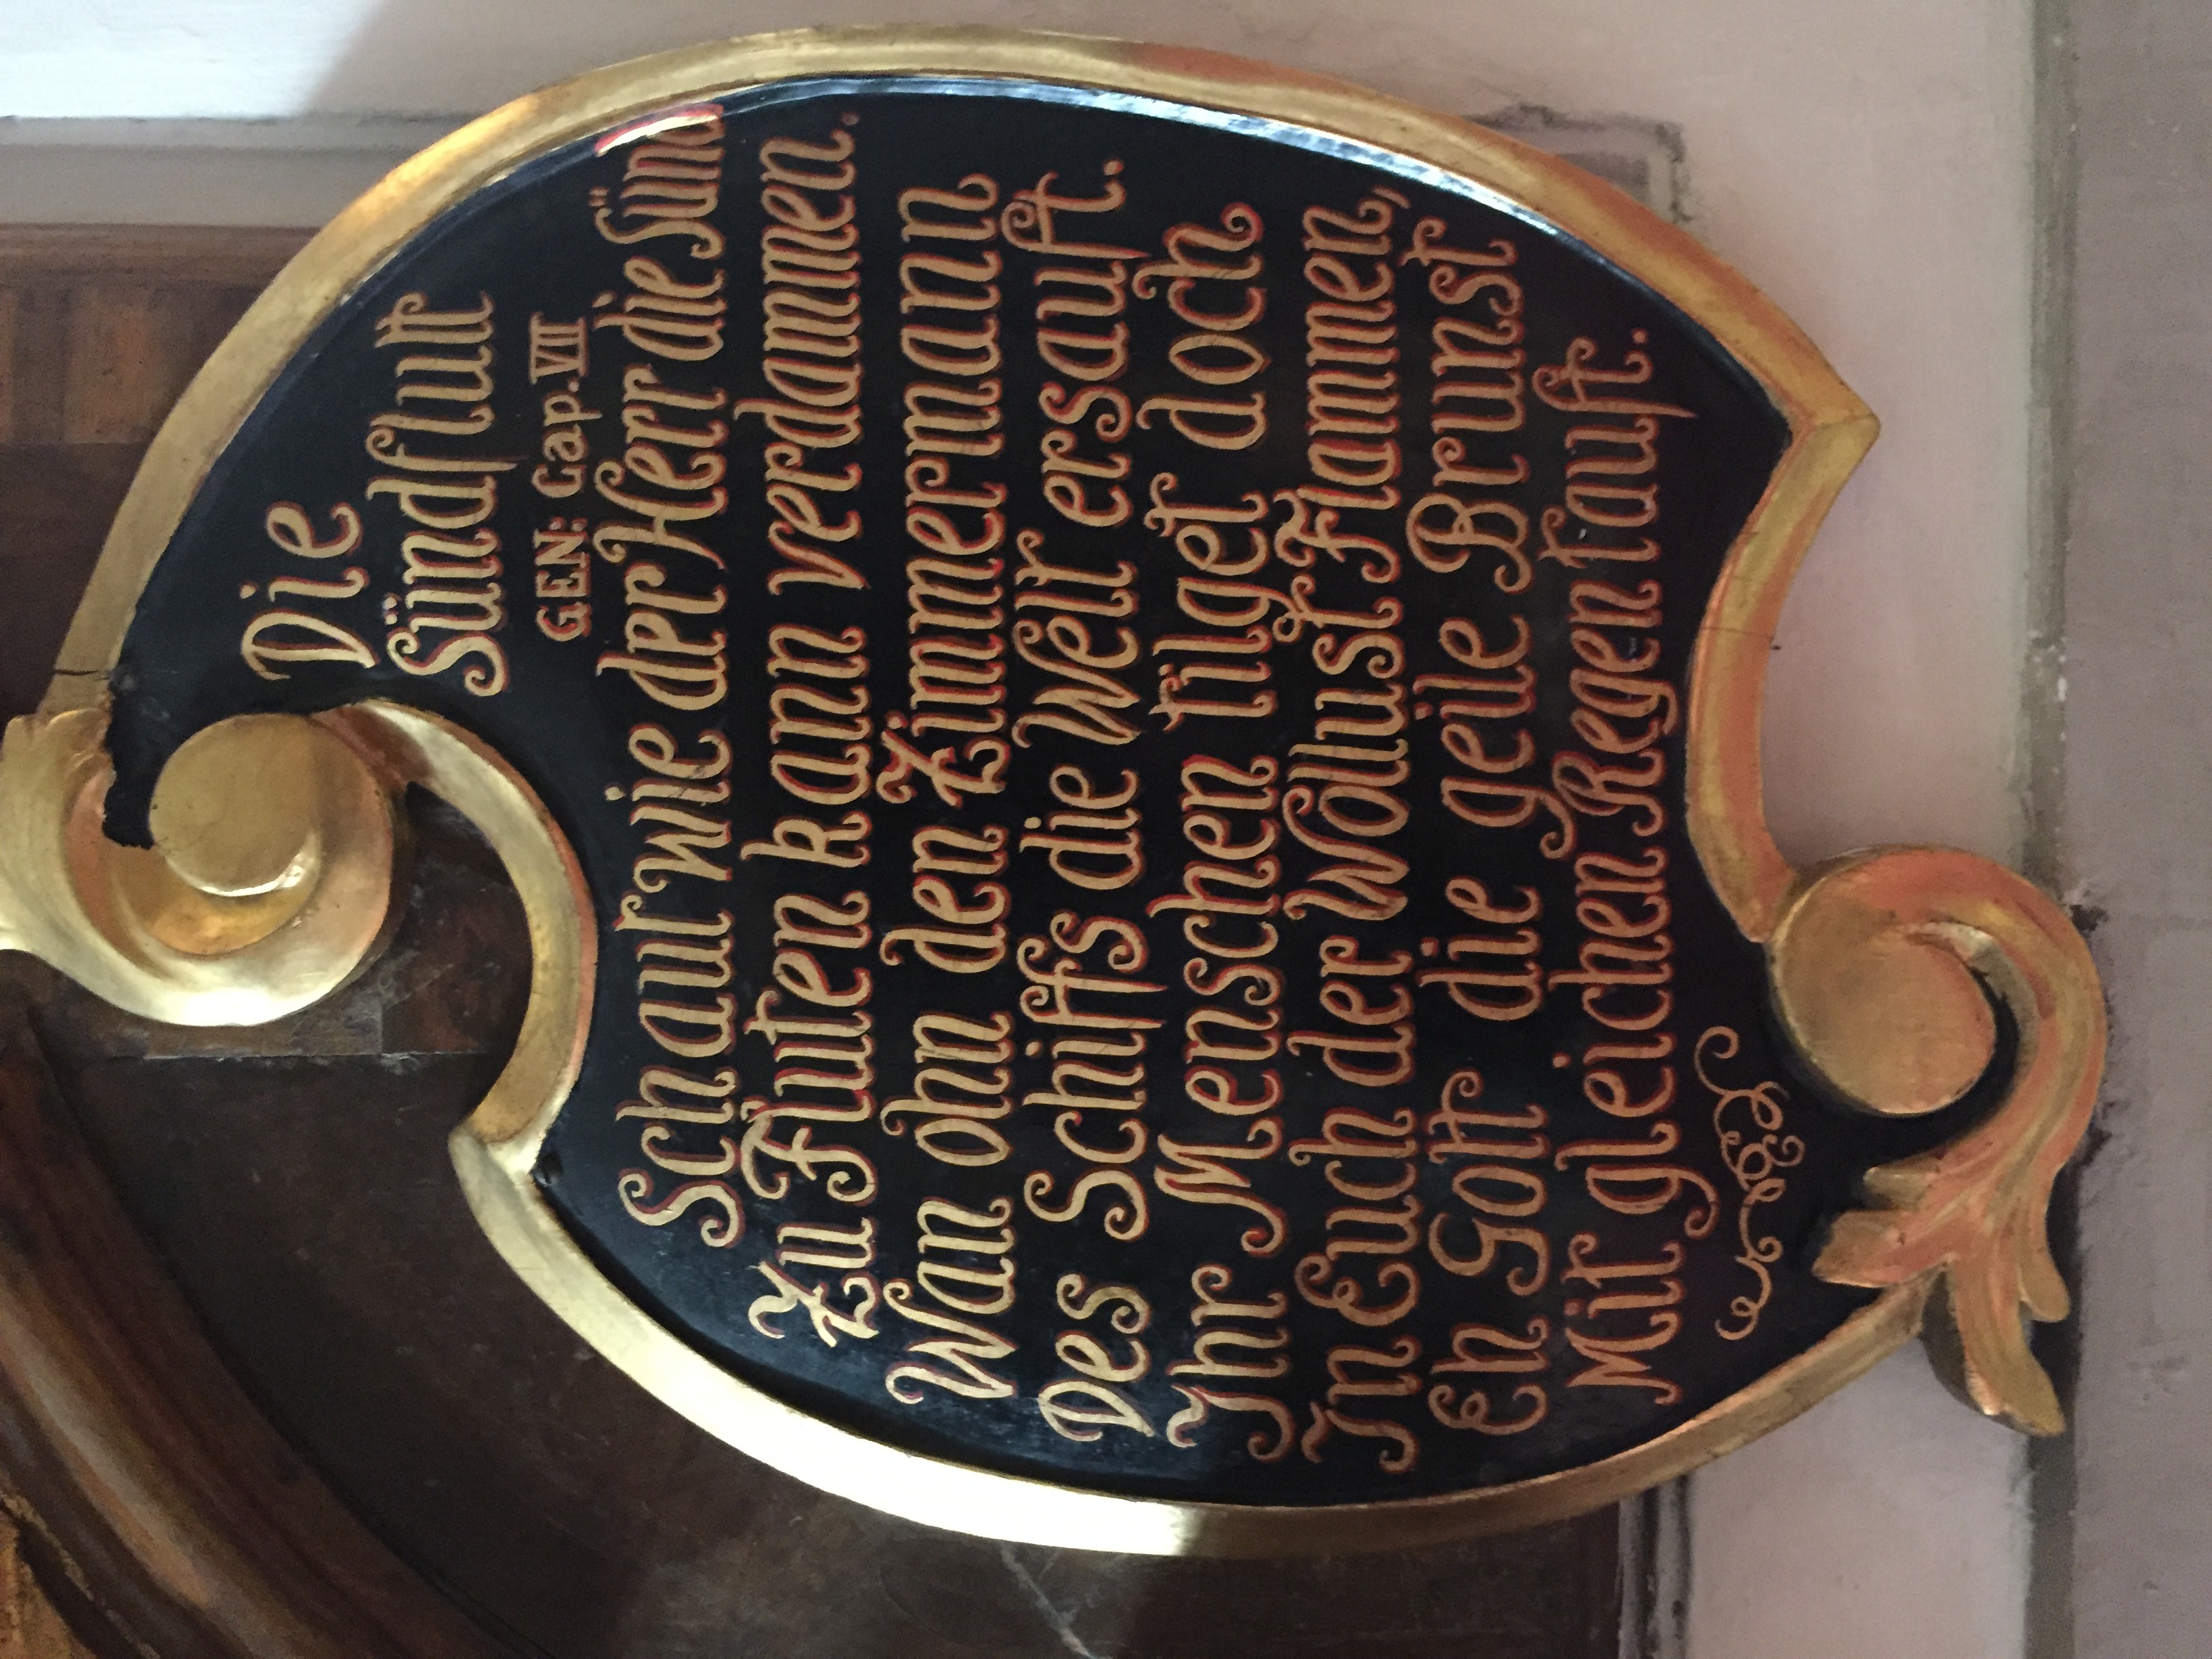 Die
Sündflutt
GEN: Cap. VII
Schaut wie der Herr die Sünd
Zu Fluten kann verdammen.
Wan ohn den Zimmermann
Des Schiffs die Welt ersauft.
Ihr Menschen tilget doch
In Euch der Wollust Flammen,
Eh Gott die geile Brunst
Mit gleichen Regen tauft.